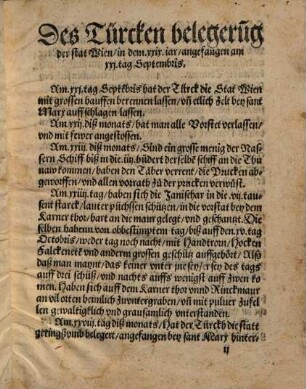 Des Türcken belegerũg
der stat Wien/ in dem .xxix. iar/ angefangen am
xxj. tag Septembris.
Am .xxj. tag Septẽbris hat der Türck die Stat Wien
mit grossen hauffen berennen lassen/ vñ etlich Zelt bey sant
Marx auffschlagen lassen.
Am .xxij. diß monats/ hat man alle Vorstet verlassen/
vnd mit fewer angestossen.
Am .xxiij. diß monats/ Sind ein grosse menig der Nas-
sern Schiff biß in die .iiij. hũdert derselbẽ schiff an die Thũ
naw kommen/ haben den Täber verrent/ die Prucken ab-
geworffen/ vnd allen vorrath zů der prucken verwüst.
Am .xxiiij. tag/ haben sich die Janitschar in die .vij. tau-
sent starck/ lauter püchssen schützen/ in die vorstat bey dem
Karner thor/ hart an die maur gelegt/ vnd geschantzt. Die
selben haben von obbestimptem tag/ biß auff den .xv. tag
Octobris/ weder tag noch nacht/ mit Handtrorn/ Hocken
Falckenetẽ vnd anderm grossen geschütz auffgehört/ Also
daß man maynt/ das feiner vnter jne sey/ er sey des tags
auff drei schüß/ vnd nachts auffs wenigst auff Zwen ko-
men. Haben sich auff dem Karner thor vnnd Rinckmaur
an vil orten heimlich zuuntergraben/ vñ mit puluer zufel
len gewaltigklich vnd grausamlich vnterstanden.
Am .xxvij. tag diß monats/ Hat der Türckh die statt
gering Zumb belegert/ angefangen bey sant Marx hinter-
ij